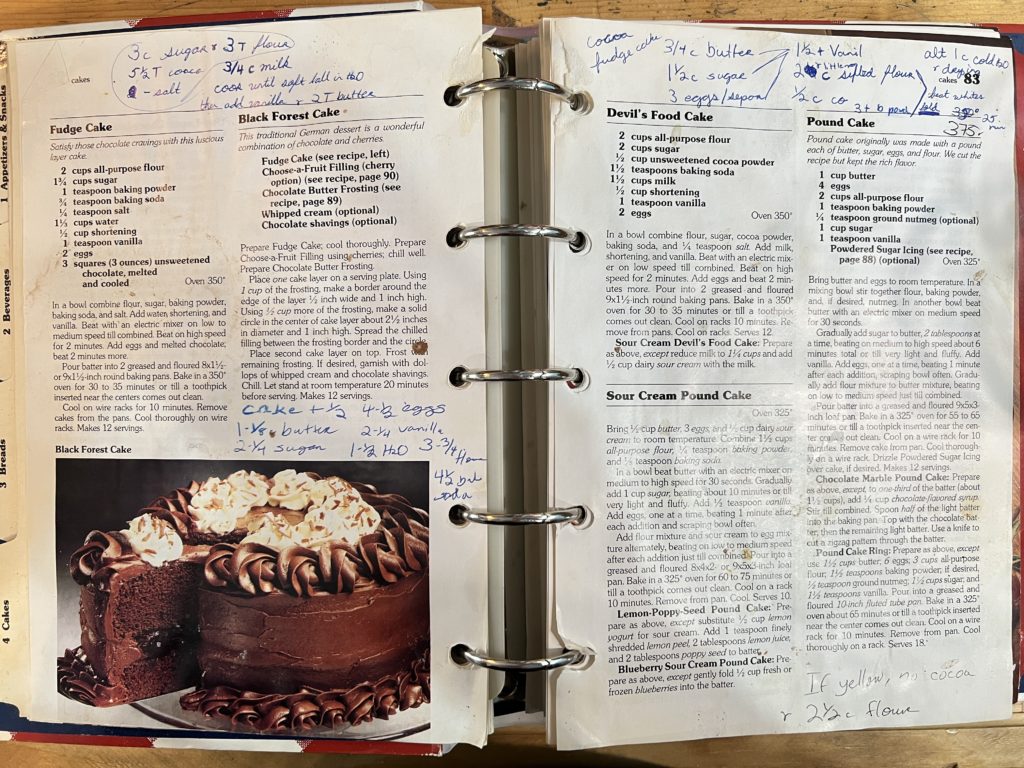 3 c sugar & 3 T flour
5½ T cocoa 3/4 c milk
- salt cook until soft ball in
then add vanilla 2 T butter
cakes
Fudge Cake
Satisfy those chocolate cravings with this luscious
layer cake.
2 cups all-purpose flour
1¾ cups sugar
1 teaspoon baking powder
¾ teaspoon baking soda
¼ teaspoon salt
1⅓ cups water
½ cup shortening
1 teaspoon vanilla
2 eggs
3 squares (3 ounces) unsweetened
chocolate, melted
and cooled Oven 350°
In a bowl combine flour, sugar, baking powder,
baking soda, and salt. Add water, shortening, and
vanilla. Beat with an electric mixer on low to
medium speed till combined. Beat on high speed
for 2 minutes. Add eggs and melted chocolate;
beat 2 minutes more.
Pour batter into 2 greased and floured 8x1½-
or 9x1½-inch round baking pans. Bake in a 350°
oven for 30 to 35 minutes or till a toothpick
inserted near the centers comes out clean.
Cool on wire racks for 10 minutes. Remove
cakes from the pans. Cool thoroughly on wire
racks. Makes 12 servings.
Black Forest Cake
Black Forest Cake
This traditional German dessert is a wonderful
combination of chocolate and cherries.
Fudge Cake (see recipe, left)
Choose-a-Fruit Filling (cherry
option) (see recipe, page 90)
Chocolate Butter Frosting (see
recipe, page 89)
Whipped cream (optional)
Chocolate shavings (optional)
Prepare Fudge Cake; cool thoroughly. Prepare
Choose-a-Fruit Filling using cherries; chill well.
Prepare Chocolate Butter Frosting.
Place one cake layer on a serving plate. Using
1 cup of the frosting, make a border around the
edge of the layer ½ inch wide and 1 inch high.
Using ½ cup more of the frosting, make a solid
circle in the center of cake layer about 2½ inches
in diameter and 1 inch high. Spread the chilled
filling between the frosting border and the circle.
Place second cake layer on top. Frost
remaining frosting. If desired, garnish with dol-
lops of whipped cream and chocolate shavings.
Chill. Let stand at room temperature 20 minutes
before serving. Makes 12 servings.
cake + ½ 4-½ eggs
1-⅛ butter 2-¼ vanilla
2-¼ sugar 1-½ H2O 3-¾ flour
4½
soda
1 Appetizers & Snacks
2 Beverages
3 Breads
4 Cakes
cocoa
fudge cake
3/4 c butter
1½ c sugar
3 eggs/
1½ t Vanil
2 c sifted flour
½ c co
3 t b powd
alt 1 c cold
beat whites
fold
375°
25
cakes 83
Devil's Food Cake
2 cups all-purpose flour
2 cups sugar
½ cup unsweetened cocoa powder
1½ teaspoons baking soda
1½ cups milk
½ cup shortening
1 teaspoon vanilla
2 eggs Oven 350°
In a bowl combine flour, sugar, cocoa powder,
baking soda, and ¼ teaspoon salt. Add milk,
shortening, and vanilla. Beat with an electric mix-
er on low speed till combined. Beat on high
speed for 2 minutes. Add eggs and beat 2 min-
utes more. Pour into 2 greased and floured
9x1½-inch round baking pans. Bake in a 350°
oven for 30 to 35 minutes or till a toothpick
comes out clean. Cool on racks 10 minutes. Re-
move from pans. Cool on racks. Serves 12.
Sour Cream Devil's Food Cake: Prepare
as above, except reduce milk to 1¼ cups and add
½ cup dairy sour cream with the milk.
Sour Cream Pound Cake
Oven 325°
Bring ½ cup butter, 3 eggs, and ½ cup dairy sour
cream to room temperature. Combine 1½ cups
all-purpose flour, ¼ teaspoon baking powder,
and ⅛ teaspoon baking soda.
In a bowl beat butter with an electric mixer on
medium to high speed for 30 seconds. Gradually
add 1 cup sugar, beating about 10 minutes or till
very light and fluffy. Add ½ teaspoon vanilla.
Add eggs, one at a time, beating 1 minute after
each addition and scraping bowl often.
Add flour mixture and sour cream to egg mix-
ture alternately, beating on low to medium speed
after each addition just till combined. Pour into a
greased and floured 8x4x2- or 9x5x3-inch loaf
pan. Bake in a 325° oven for 60 to 75 minutes or
till a toothpick comes out clean. Cool on a rack
10 minutes. Remove from pan. Cool. Serves 10.
Lemon-Poppy-Seed Pound Cake: Pre-
pare as above, except substitute ½ cup lemon
yogurt for sour cream. Add 1 teaspoon finely
shredded lemon peel, 2 tablespoons lemon juice,
and 2 tablespoons poppy seed to batter.
Blueberry Sour Cream Pound Cake: Pre-
pare as above, except gently fold ½ cup fresh or
frozen blueberries into the batter.
Pound Cake
Pound cake originally was made with a pound
each of butter, sugar, eggs, and flour. We cut the
recipe but kept the rich flavor.
1 cup butter
4 eggs
2 cups all-purpose flour
1 teaspoon baking powder
¼ teaspoon ground nutmeg (optional)
1 cup sugar
1 teaspoon vanilla
Powdered Sugar Icing (see recipe,
page 88) (optional) Oven 325°
Bring butter and eggs to room temperature. In a
mixing bowl stir together flour, baking powder,
and, if desired, nutmeg. In another bowl beat
butter with an electric mixer on medium speed
for 30 seconds.
Gradually add sugar to butter, 2 tablespoons at
a time, beating on medium to high speed about 6
minutes total or till very light and fluffy. Add
vanilla. Add eggs, one at a time, beating 1 minute
after each addition, scraping bowl often. Gradu-
ally add flour mixture to butter mixture, beating
on low to medium speed just till combined.
Pour batter into a greased and floured 9x5x3-
inch loaf pan. Bake in a 325° oven for 55 to 65
minutes or till a toothpick inserted near the cen-
ter comes out clean. Cool on wire rack for 10
minutes. Remove cake from pan. Cool thorough-
ly on a wire rack. Drizzle Powdered Sugar Icing
over cake, if desired. Makes 12 servings.
Chocolate Marble Pound Cake: Prepare as
above, except, to one-third of the batter (about
1½ cups), add ¼ cup chocolate-flavored syrup.
Stir till combined. Spoon half of the light batter
into the baking pan. Top with the chocolate bat-
ter, then the remaining light batter. Use a knife to
cut a zigzag pattern through the batter.
Pound Cake Ring: Prepare as above, except
use 1½ cups butter; 6 eggs; 3 cups all-purpose
flour; 1½ teaspoons baking powder; if desired,
½ teaspoon ground nutmeg; 1½ cups sugar; and
1½ teaspoons vanilla. Pour into a greased and
floured 10-inch fluted tube pan. Bake in a 325°
oven about 65 minutes or till a toothpick inserted
near the center comes out clean. Cool on a wire
rack for 10 minutes. Remove from pan. Cool
thoroughly on a rack. Serves 18.
If yellow, no cocoa
r 2½ c flour